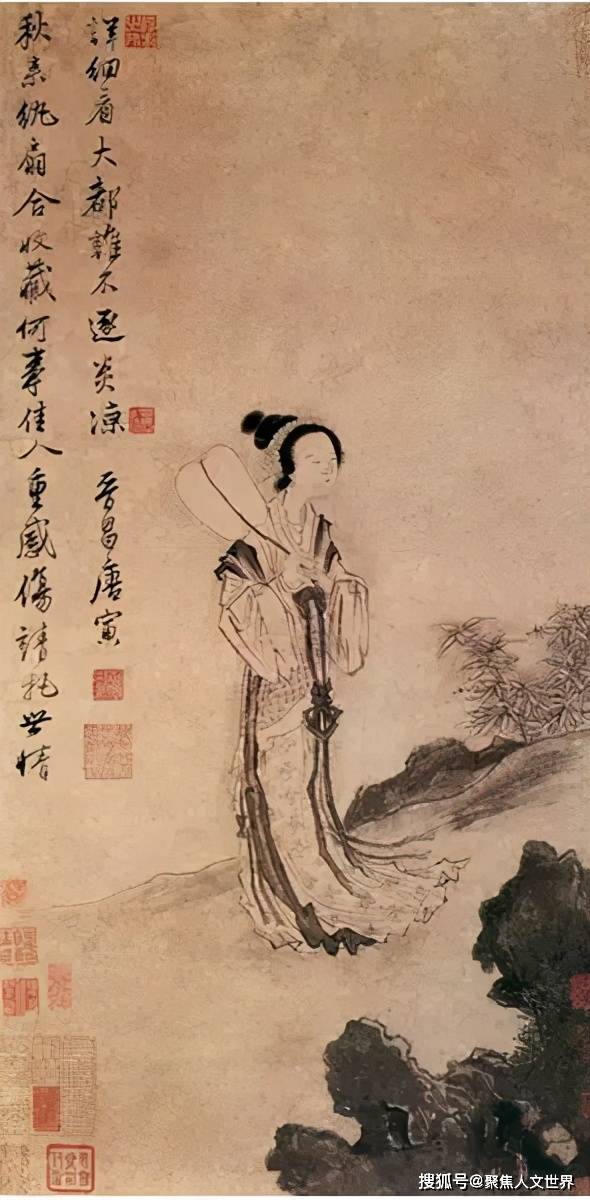 秋來紈扇合收藏何事佳人重感傷請把世情
詳細看大都誰不逐炎涼 晉昌唐寅
搜狐号@聚焦人文世界